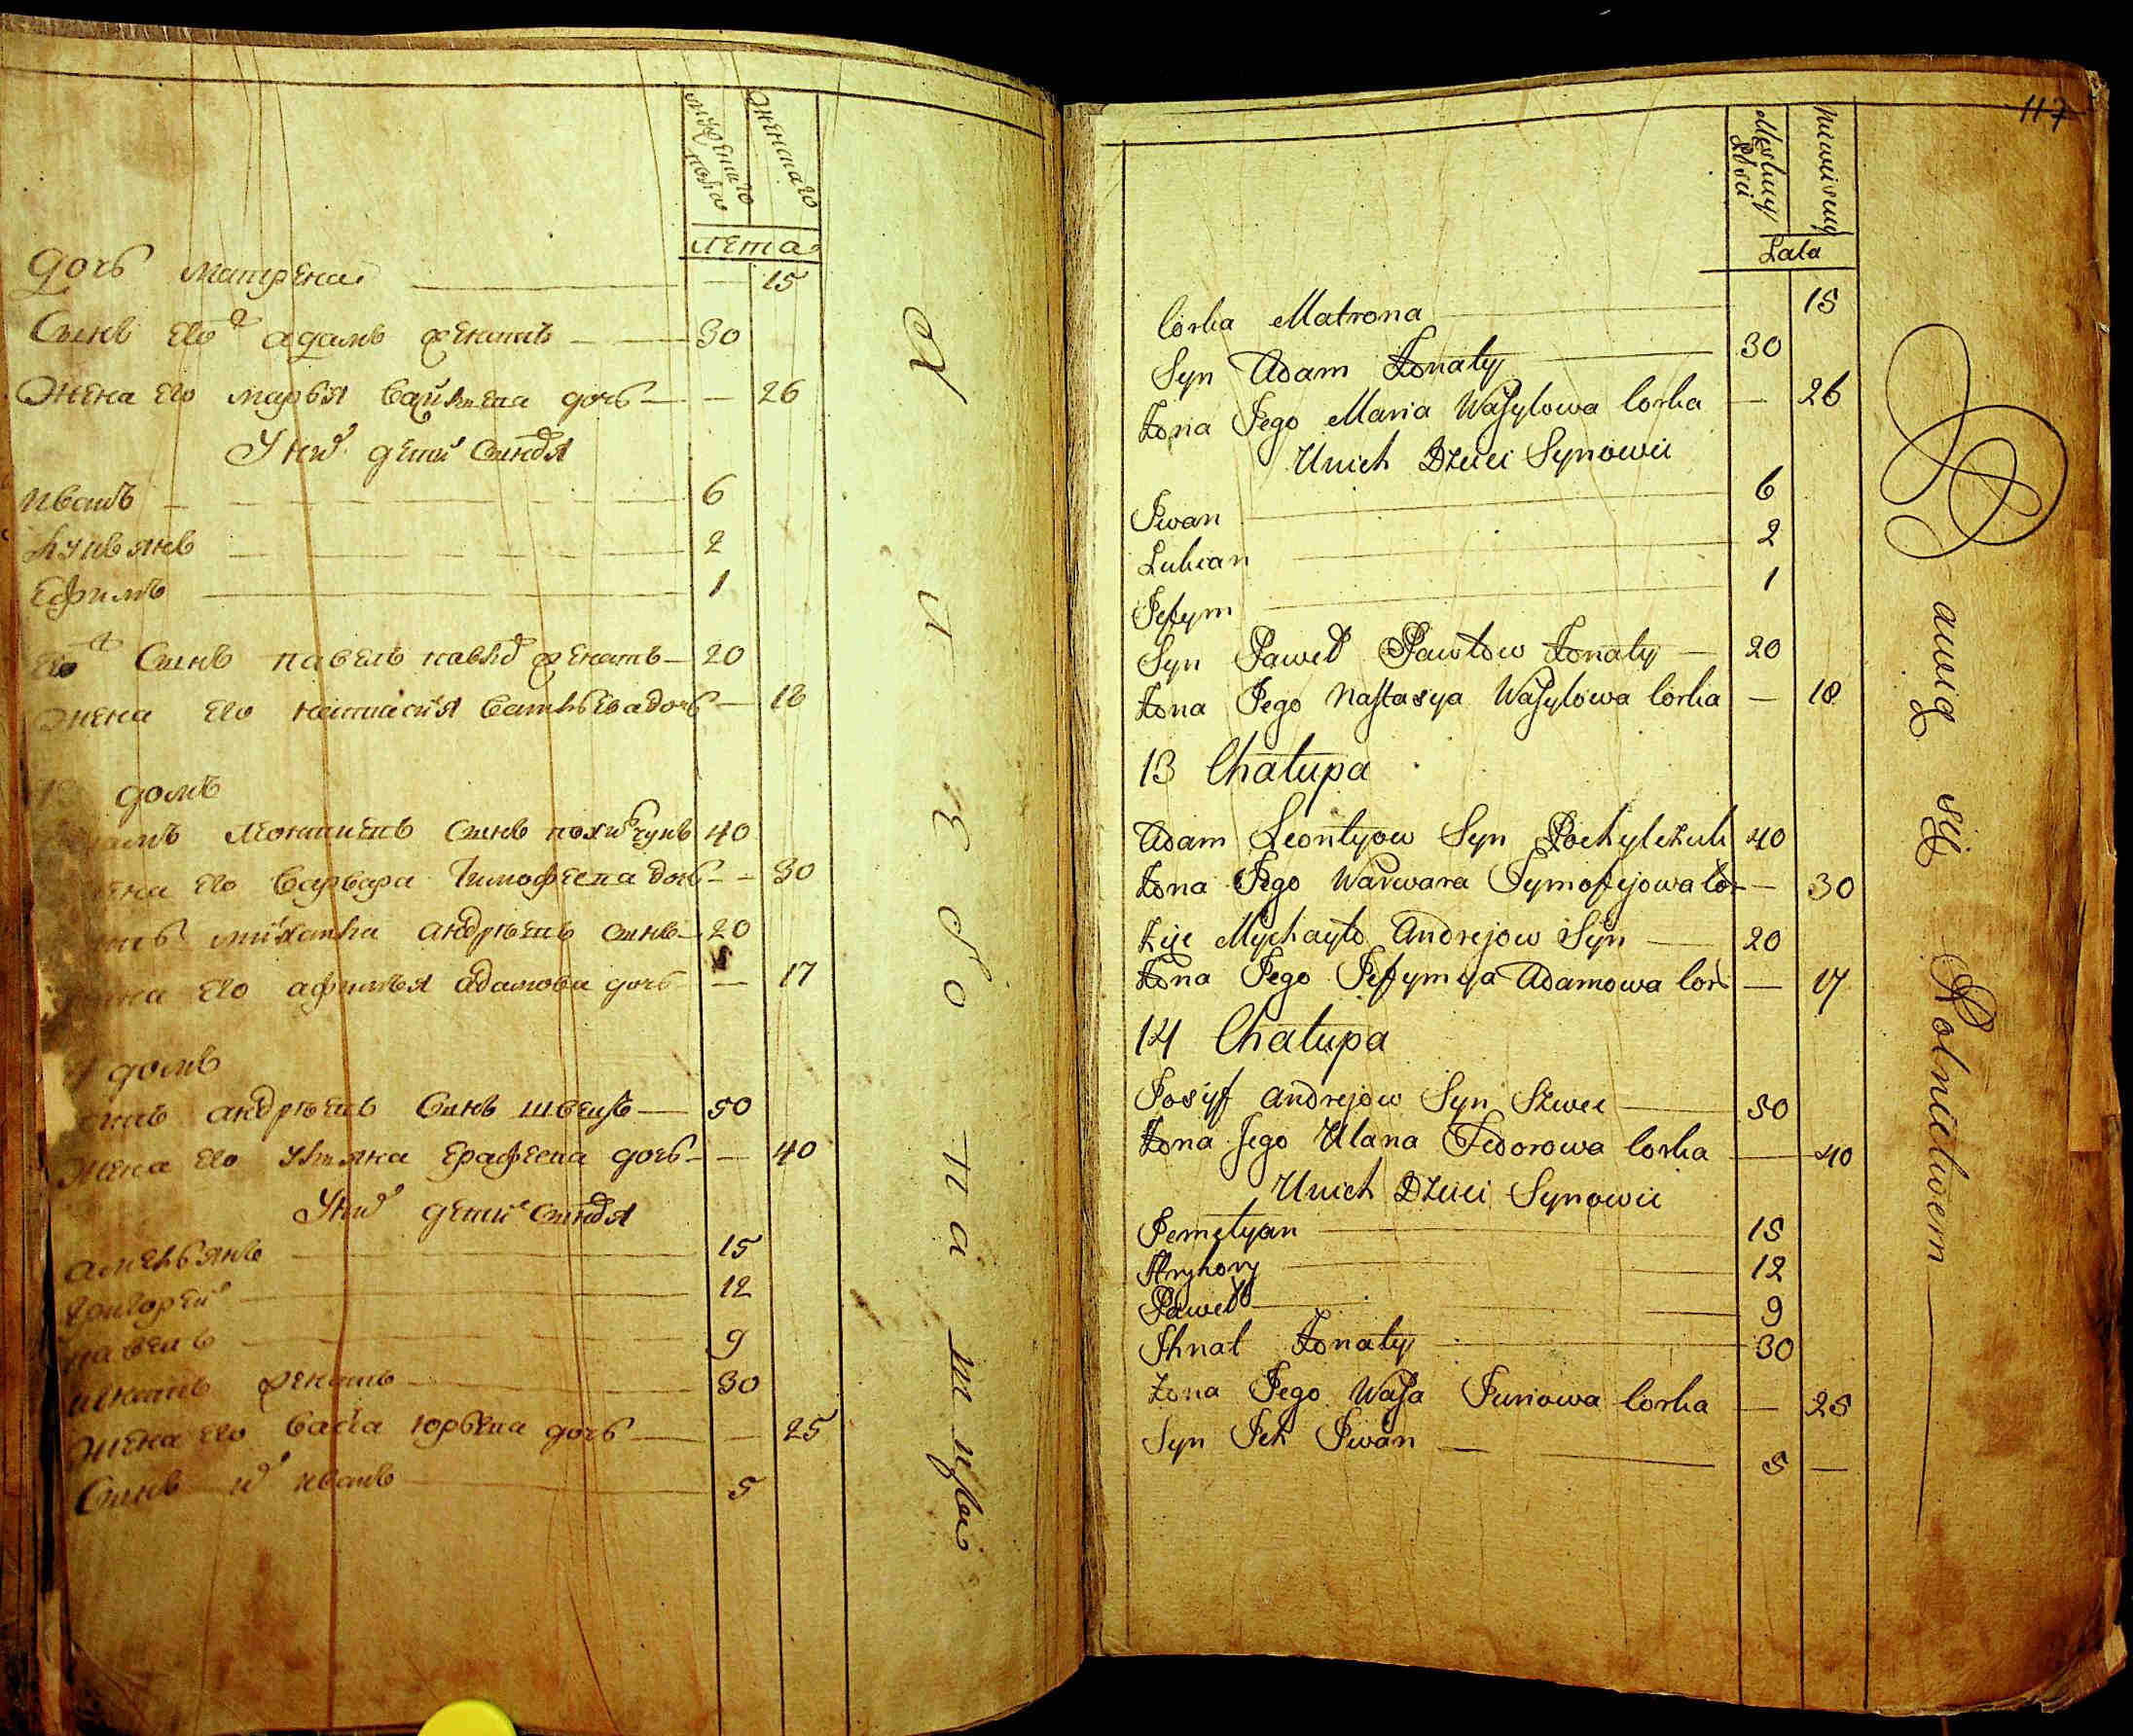 мужеска пола
женскаго
лета
дочь матрена — 15
Сынъ его адамъ женатъ — 30
Жена его марья дочь — 26
У них дети синовя
иванъ — 6
лукьянъ — 2
ефимъ — 1
его Сынъ павелъ женатъ — 20
жена его настасия дочь — 18
домъ
Леонтиевъ синъ — 40
жена его варвара тимофеева дочь — 30
михаило андреевъ синъ — 20
жена его афимья адамова дочь — 17
домъ
андреевъ Синъ швецъ — 50
жена его уляна дочь — 40
У них дети синовя
амельянъ — 15
григорей — 12
павелъ — 9
игнатъ женатъ — 30
жена его васка юрьева дочь — 25
Синъ их иванъ — 5
117
Męskiey Płci
Niewisciey
Lata
Corka Matrona — 15
Syn Adam Żonaty — 30
Żona Jego Maria Wasylowa Corka — 26
Unich Dzieci Synowie
Jwan — 6
Lukian — 2
Jefym — 1
Syn Paweł Pawłow Żonaty — 20
Żona Jego Nastasya Wasylowa Corka — 18
13 Chałupa
Adam Leontyow Syn Pochylczuk 40
Żona Jego Warwara Tymofejowa Cor — 30
Zięć Mychayło Andrejow Syn — 20
Żona Jego Jefymija Adamowa Cor — 17
14 Chałupa
Josyf Andrejow Syn Szwec — 50
Żona Jego Ulana Fedorowa Corka — 40
Unich Dzieci Synowie
Jemelyan — 15
Hryhory — 12
Paweł — 9
Jhnat Żonaty — 30
Żona Jego Wasa Juriowa Corka — 25
Syn Ich Jwan — 5
Bawią się Rolnictwem